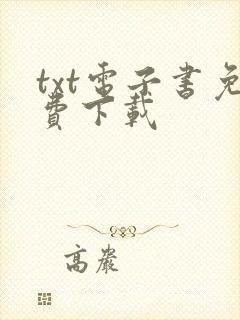 txt電子書免
費下載
高嚴